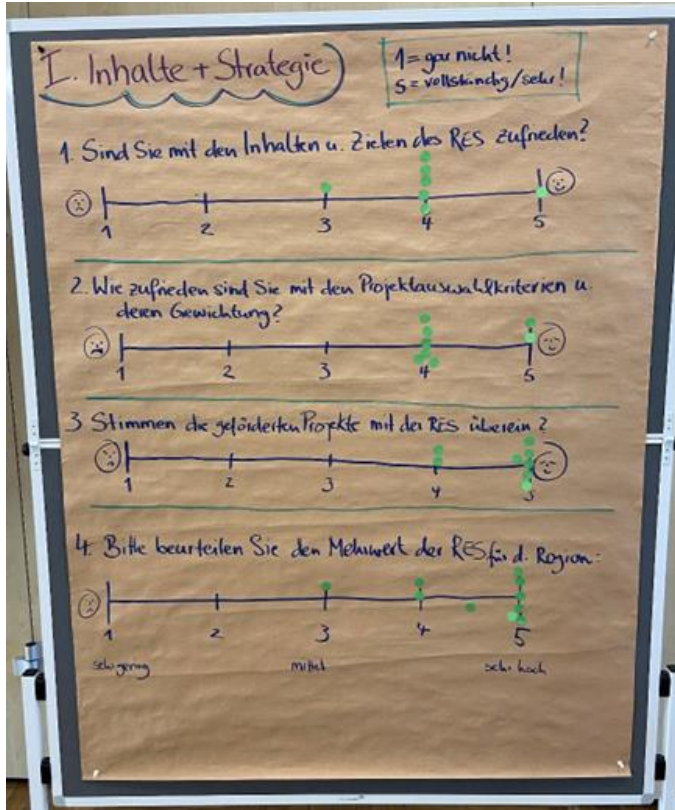 I. Inhalte + Strategie
1 = gar nicht!
5 = vollständig/sehr!
1. Sind Sie mit den Inhalten u. Zielen des RES zufrieden?
1 2 3 4 5
2. Wie zufrieden sind Sie mit den Projektauswahlkriterien u.
deren Gewichtung?
1 2 3 4 5
3 Stimmen die geförderten Projekte mit der RES überein?
1 2 3 4 5
4. Bitte beurteilen Sie den Mehrwert der RES für d. Region:
1 2 3 4 5
sehr gering mittel sehr hoch